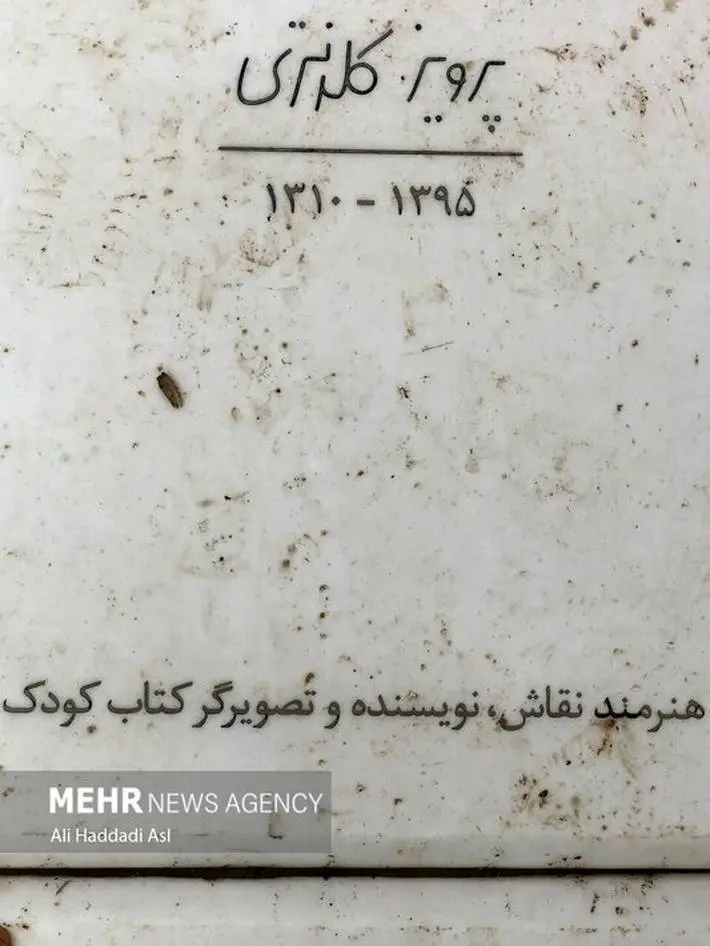 پرویز کلانتری
۱۳۱۰ - ۱۳۹۵
هنرمند نقاش، نویسنده و تصویرگر کتاب کودک
MEHR NEWS AGENCY
Ali Haddadi Asl